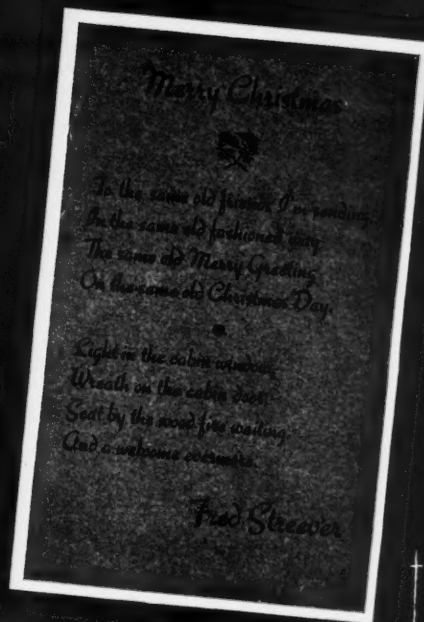 Merry Christmas
To the same old friends I'm sending,
In the same old fashioned way
The same old Merry Greeting
On the same old Christmas Day.
Light in the cabin window,
Wreath on the cabin door,
Seat by the wood fire waiting
And a welcome evermore.
Fred Streever